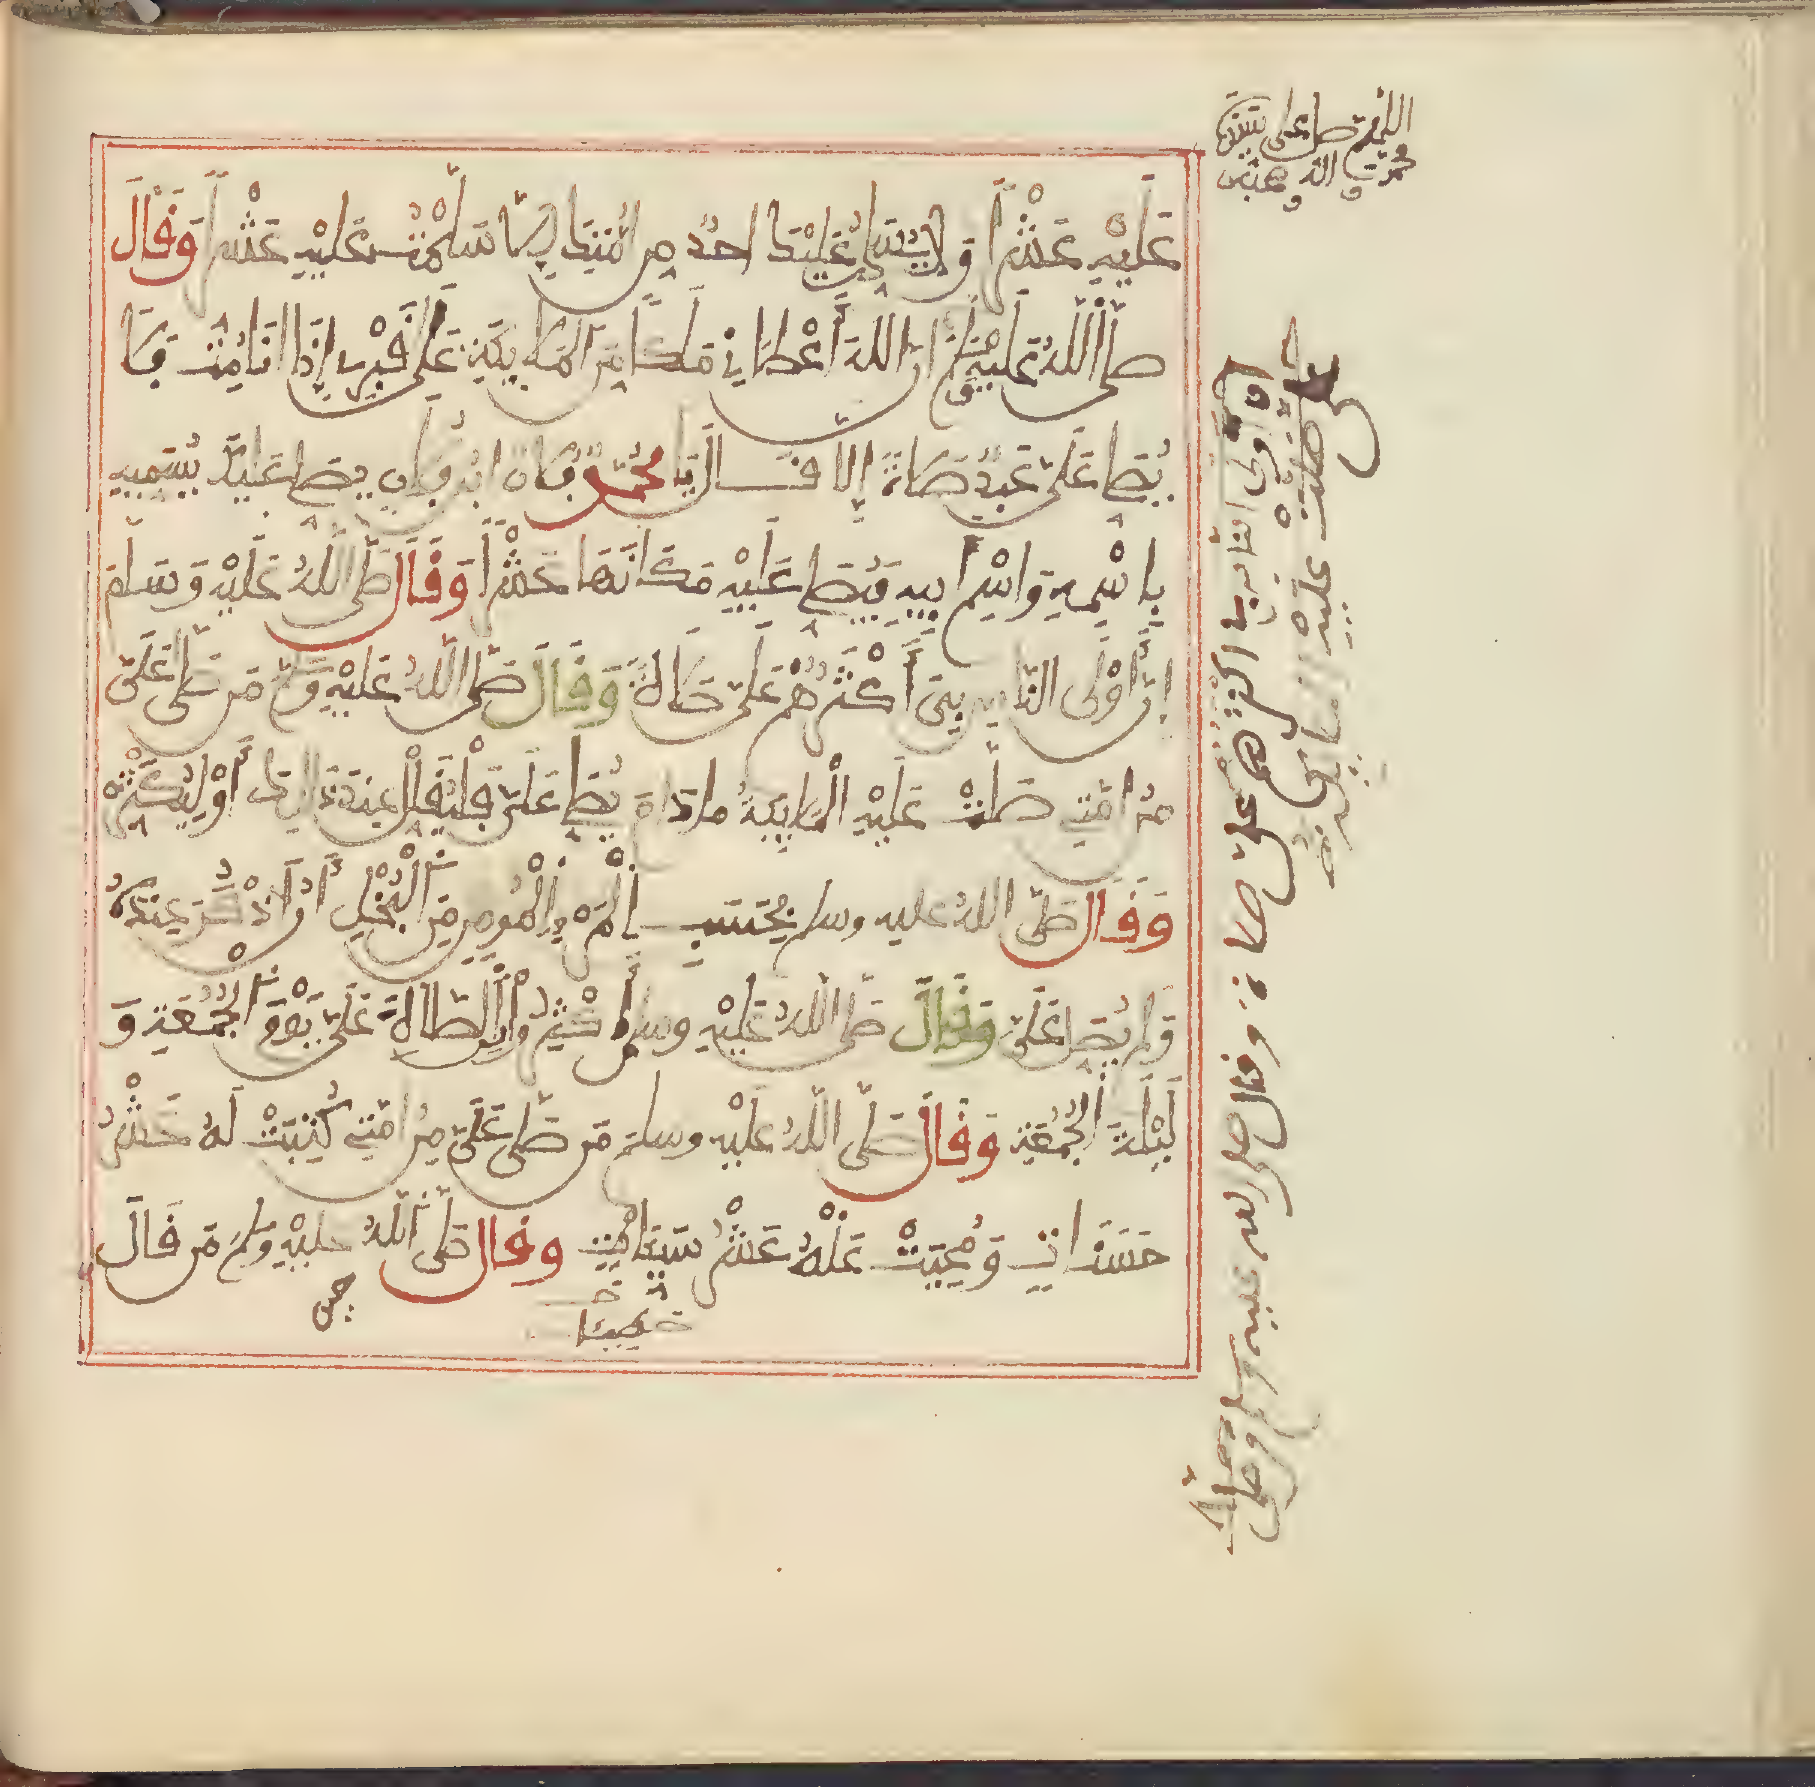 عَلَيْهِ عَشْرًا وَلَا يُسَلِّمُ عَلَيْكَ أَحَدٌ مِنْ أُمَّتِكَ إِلَّا سَلَّمْتُ عَلَيْهِ عَشْرًا وَقَالَ
صَلَّى اللهُ عَلَيْهِ وَسَلَّمَ إِنَّ اللهَ أَعْطَانِي مَلَكًا مِنَ الْمَلَائِكَةِ عَلَى قَبْرِي إِذَا أَنَا مِتُّ فَلَا
يُصَلِّي عَلَيَّ عَبْدٌ صَلَاةً إِلَّا قَالَ يَا مُحَمَّدُ فُلَانٌ ابْنُ فُلَانٍ يُصَلِّي عَلَيْكَ يُسَمِّيهِ
بِاسْمِهِ وَاسْمِ أَبِيهِ فَيُصَلِّي عَلَيْهِ مَكَانَهَا عَشْرًا وَقَالَ صَلَّى اللهُ عَلَيْهِ وَسَلَّمَ
إِنَّ أَوْلَى النَّاسِ بِي أَكْثَرُهُمْ عَلَيَّ صَلَاةً وَقَالَ صَلَّى اللهُ عَلَيْهِ وَسَلَّمَ مَنْ صَلَّى عَلَيَّ
مِنْ أُمَّتِي صَلَّتْ عَلَيْهِ الْمَلَائِكَةُ مَا دَامَ يُصَلِّي عَلَيَّ فَلْيُقْلِلْ عِنْدَ ذَلِكَ أَوْ لِيُكْثِرْ
وَقَالَ صَلَّى اللهُ عليه وسلم بِحَسْبِ الْمَرْءِ الْمُومِنِ مِنَ الْبُخْلِ أَنْ أُذْكَرَ عِنْدَهُ
وَلَمْ يُصَلِّ عَلَيَّ وَقَالَ صَلَّى اللهُ عَلَيْهِ وسلم أَكْثِرُوا الصَّلَاةَ عَلَيَّ يَوْمَ الْجُمُعَةِ وَ
لَيْلَةَ الْجُمُعَةِ وَقَالَ صَلَّى اللهُ عَلَيْهِ وسلم مَنْ صَلَّى عَلَيَّ مِنْ أُمَّتِي كُتِبَتْ لَهُ عَشْرُ
حَسَنَاتٍ وَمُحِيَتْ عَنْهُ عَشْرُ سَيِّئَاتٍ وقال صَلَّى اللهُ عليه وَسَلَّمَ مَنْ قَالَ
حين
اللهم صل على سيدنا
محمد وآله وصحبه
ان أولى الناس بي أكثرهم علي صلاة وقال صلى الله عليه وسلم من صلى
علي صلت عليه الملائكة